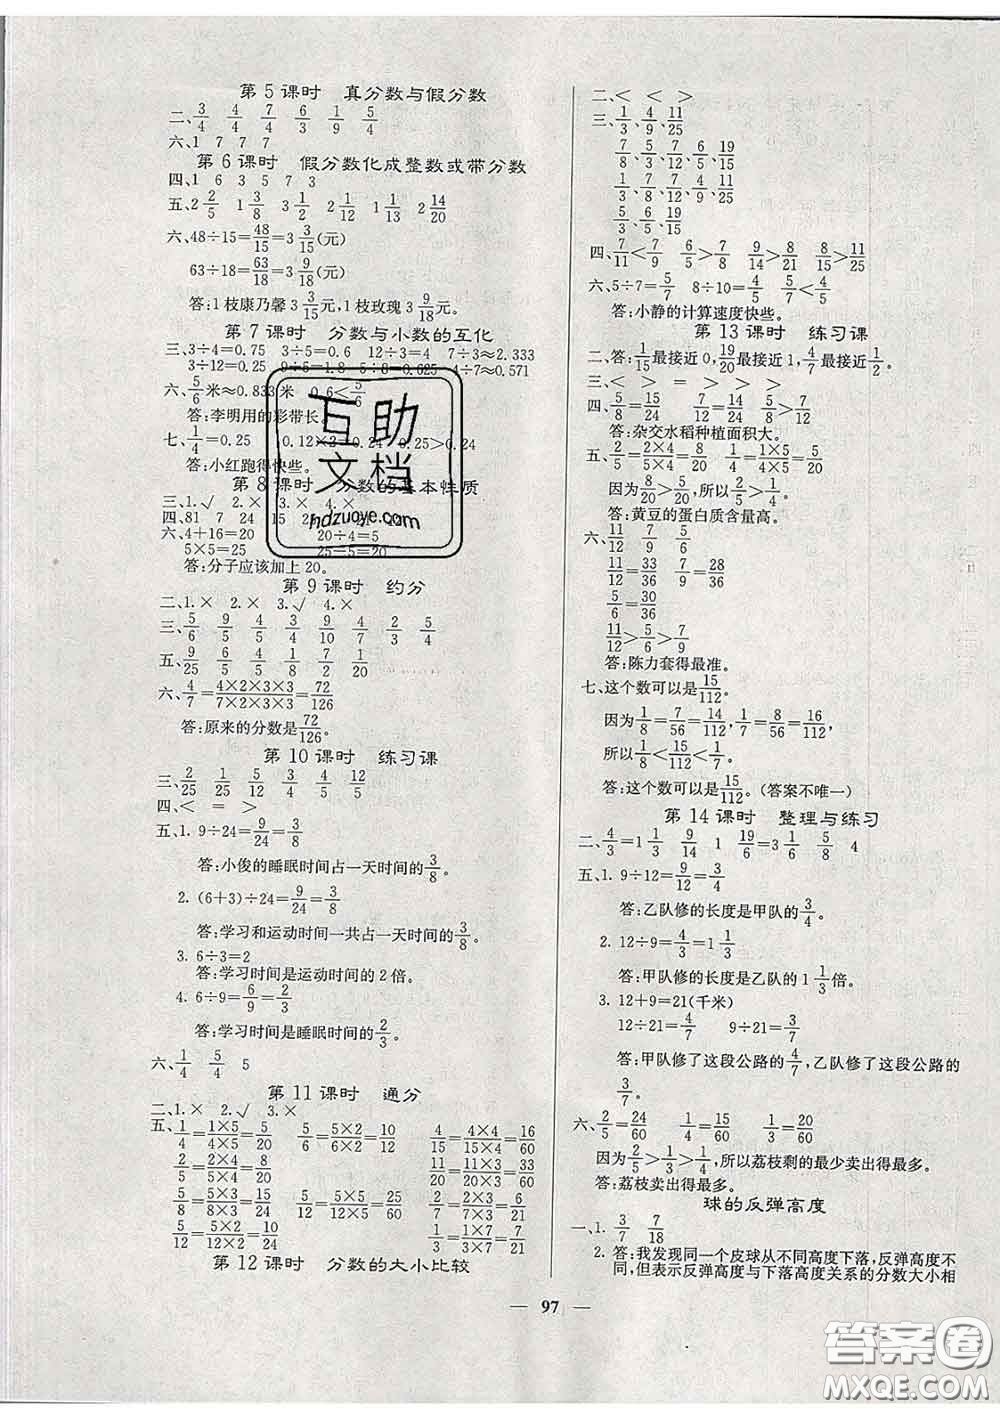 第5课时 真分数与假分数
二、3/4 4/4 7/4 6/3 1/9 5/4
六、1 7 7 7
第6课时 假分数化成整数或带分数
四、1 6 3 5 7 3
五、2 2/5 1 3/8 3 1/2 2 1/12 1 1/13 2 14/20
六、48÷15=48/15=3 3/15(元)
63÷18=63/18=3 9/18(元)
答:1枝康乃馨3 3/15元,1枝玫瑰3 9/18元。
第7课时 分数与小数的互化
三、3÷4=0.75 3÷5=0.6 12÷3=4 7÷3≈2.333
3÷12=0.25 9÷5=1.8 5÷8=0.625 4÷7≈0.571
六、5/6米≈0.833米 0.6<5/6
答:李明用的彩带长。
七、1/4=0.25 0.12×2=0.24 0.25>0.24
答:小红跑得快些。
第8课时 分数的基本性质
三、1.√ 2.× 3.×
四、81 7 24 15 21 20
六、4+16=20 20÷4=5
5×5=25 25-5=20
答:分子应该加上20。
第9课时 约分
二、1.× 2.× 3.√ 4.×
三、5/6 9/5 4/5 3/4 9/10 4/7 2/3 5/4
五、9/25 6/5 4/5 1/8 7/2 1/20
六、4/7=4×2×3×3/7×2×3×3=72/126
答:原来的分数是72/126。
第10课时 练习课
三、2/25 1/25 5/12 3/4 4/5 12/5
四、< = >
五、1. 9÷24=9/24=3/8
答:小俊的睡眠时间占一天时间的3/8。
2. (6+3)÷24=9/24=3/8
答:学习和运动时间一共占一天时间的3/8。
3. 6÷3=2
答:学习时间是运动时间的2倍。
4. 6÷9=6/9=2/3
答:学习时间是睡眠时间的2/3。
六、1/4 5/4 5
第11课时 通分
二、1.× 2.√ 3.×
五、1/4=1×5/4×5=5/20 5/6=5×2/6×2=10/12 4/15=4×4/15×4=16/60
2/5=2×4/5×4=8/20 11/20=11×3/20×3=33/60
5/8=5×3/8×3=15/24 5/12=5×5/12×5=25/60 2/7=2×3/7×3=6/21
5/12=5×2/12×2=10/24 1/3=1×7/3×7=7/21
第12课时 分数的大小比较
二、< < >
三、1/3、4/9、11/25
7/8、5/3、6/5、19/15
1/3、7/8、4/9、11/25
5/3、6/5、19/15
四、7/11<7/9 6/7>5/8 9/14>8/21 8/15>11/25
六、5÷7=5/7 8÷10=4/5 4/5>5/7
答:小静的计算速度快些。
第13课时 练习课
二、答:1/15最接近0,19/20最接近1,4/7最接近1/2。
三、< > = > > >
四、5/8=15/24 7/12=14/24 5/8>7/12
答:杂交水稻种植面积大。
五、2/5=2×4/5×4=8/20 1/4=1×5/4×5=5/20
因为8/20>5/20,所以2/5>1/4。
答:黄豆的蛋白质含量高。
六、11/12=33/36 7/9=28/36
5/6=30/36
11/12>5/6>7/9
答:陈力套得最准。
七、这个数可以是15/112。
因为1/8=7/56=14/112,1/7=8/56=16/112,
所以1/8<15/112<1/7。
答:这个数可以是15/112。(答案不唯一)
第14课时 整理与练习
二、4/3=1 1/3 9/14 1 19/6=3 1/6 5/8 4
五、1. 9÷12=9/12=3/4
答:乙队修的长度是甲队的3/4。
2. 12÷9=4/3=1 1/3
答:甲队修的长度是乙队的1 1/3倍。
3. 12+9=21(千米)
12÷21=4/7 9÷21=3/7
答:甲队修了这段公路的4/7,乙队修了这段公路的
3/7。
六、2/5=24/60 1/4=15/60 1/3=20/60
因为2/5>1/3>1/4,所以荔枝剩的最少卖出得最多。
答:荔枝卖出得最多。
球的反弹高度
一、1. 3/7 7/18
2. 答:我发现同一个皮球从不同高度下落,反弹高度不
同,但表示反弹高度与下落高度关系的分数大小相
— 97 —
互助
文档
hdzuoye.com
答案圈
MXQE.COM